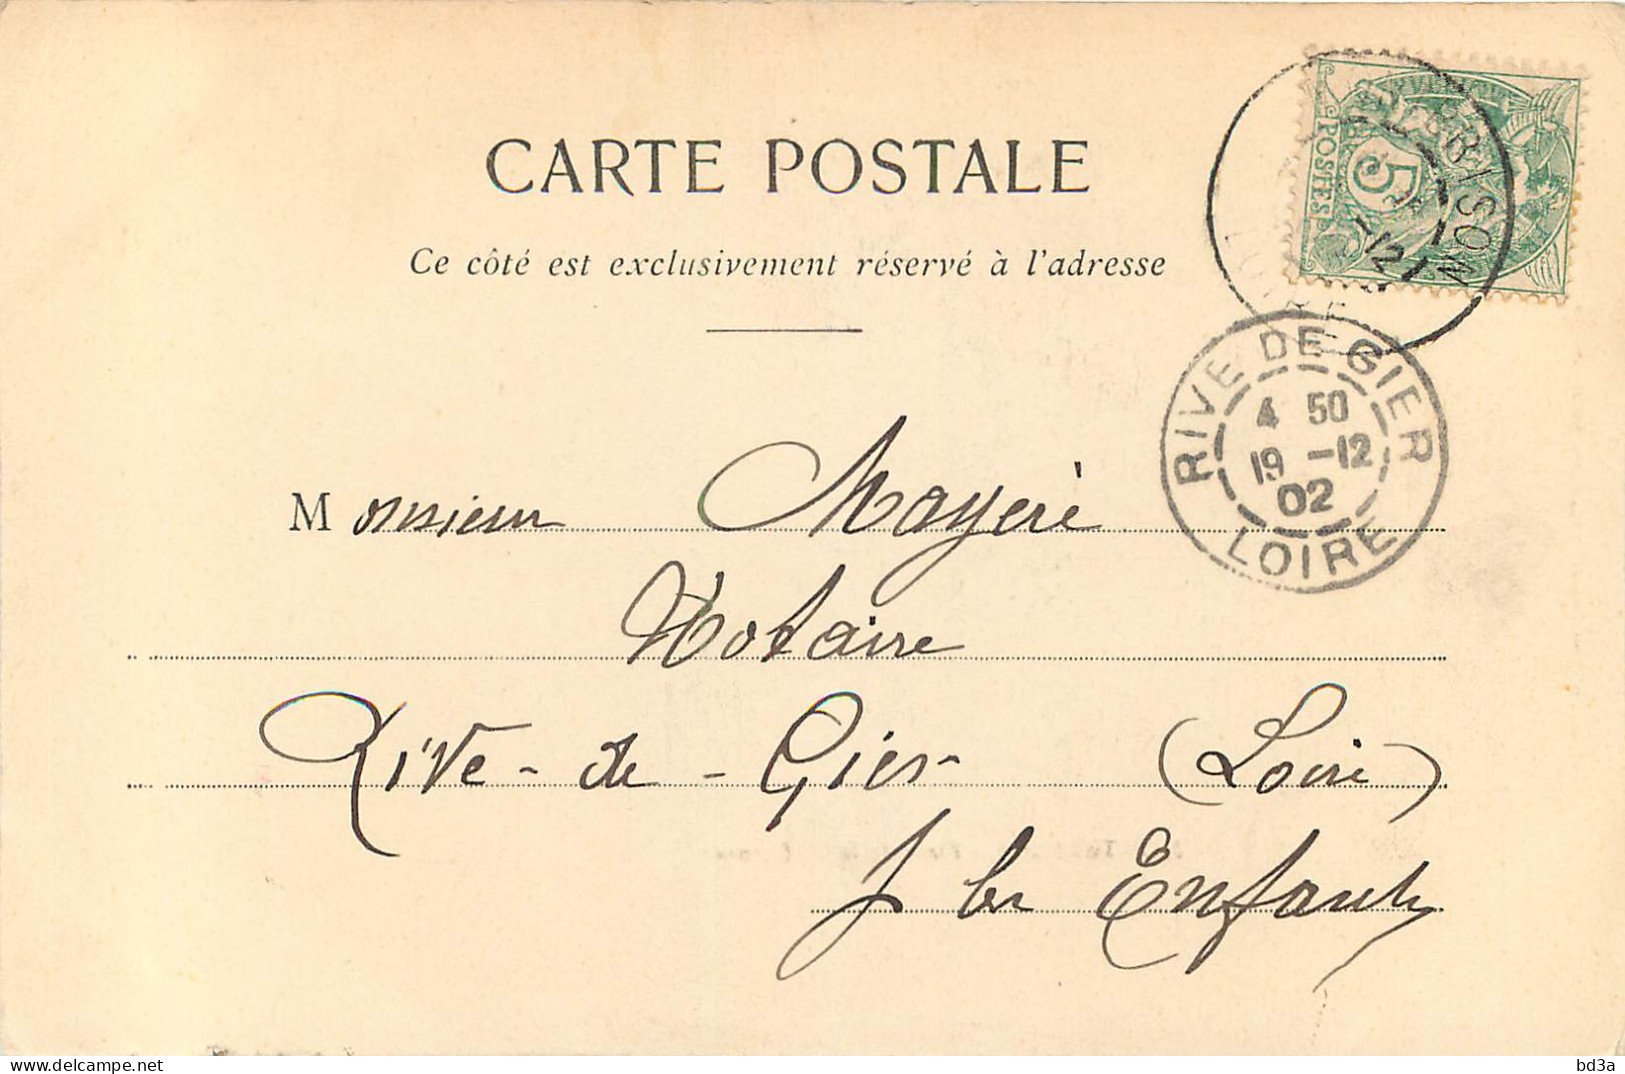 CARTE POSTALE
Ce côté est exclusivement réservé à l'adresse
POSTES
5
RIVE DE GIER
4 50
19 -12
02
LOIRE
Monsieur Mayeré
Notaire
Rive-de-Gier (Loire)
Enfants
bd3a